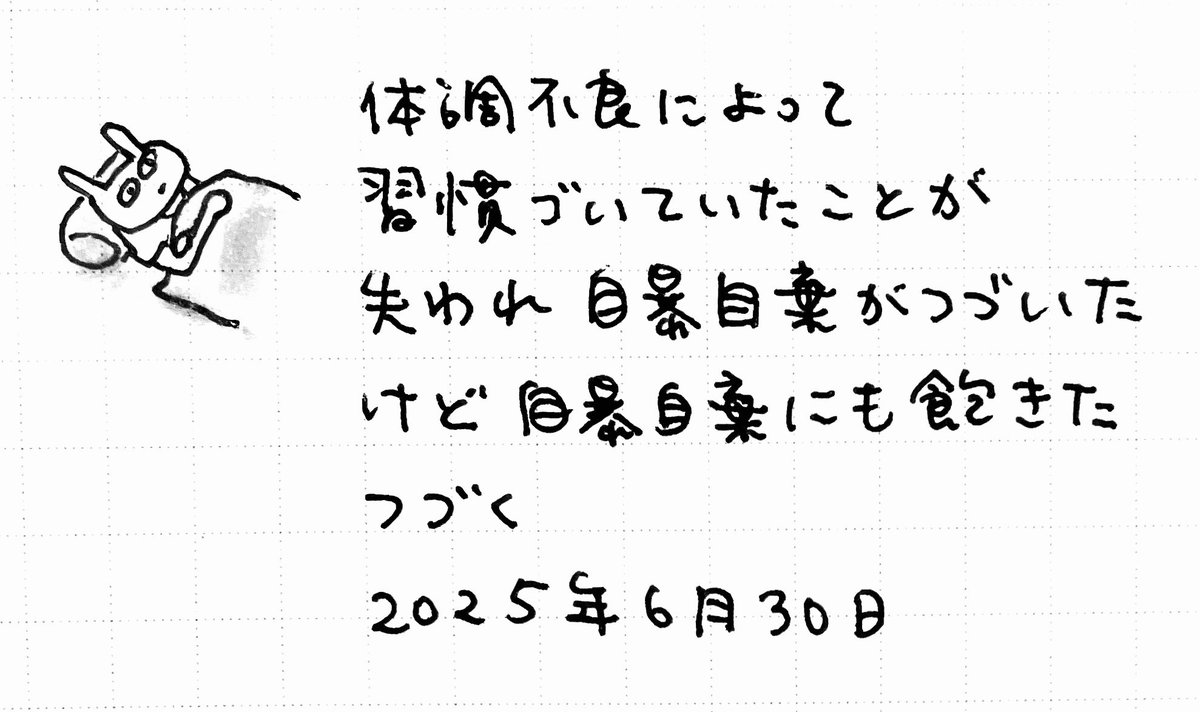 体調不良によって
習慣づいていたことが
失われ 自暴自棄がつづいた
けど 自暴自棄にも飽きた
つづく
2025年6月30日